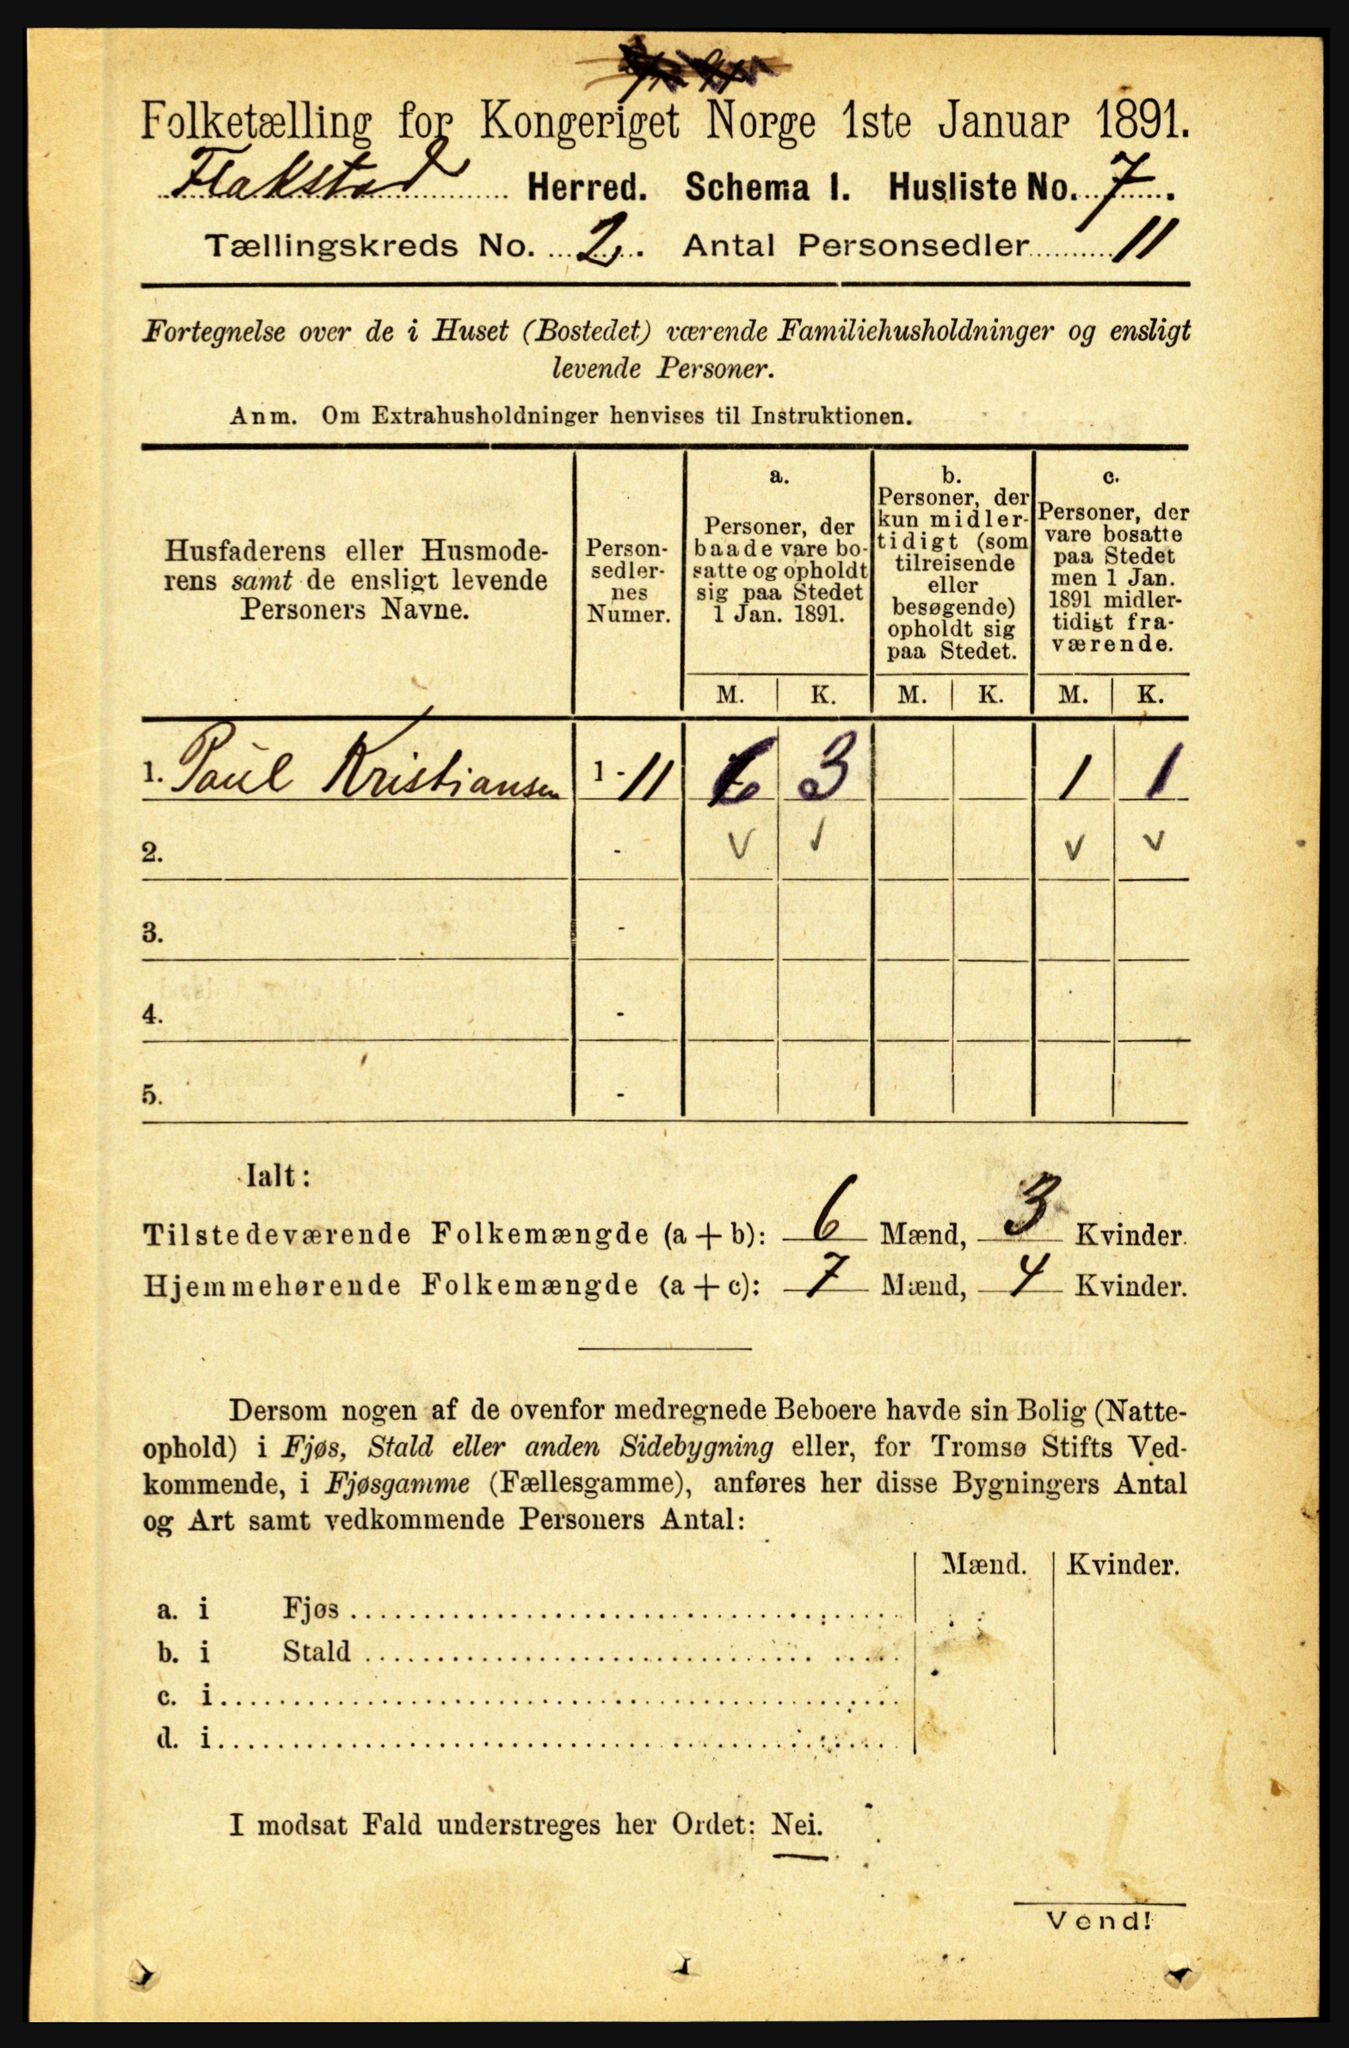 Folketælling for Kongeriget Norge 1ste Januar 1891.
Flakstad Herred. Schema 1. Husliste No. 7.
Tællingskreds No. 2. Antal Personsedler 11
Fortegnelse over de i Huset (Bostedet) værende Familiehusholdninger og ensligt
levende Personer.
Anm. Om Extrahusholdninger henvises til Instruktionen.
Husfaderens eller Husmode-
rens samt de ensligt levende
Personers Navne.
Person-
sedler-
nes
Numer.
a.
Personer, der
baade vare bo-
satte og opholdt
sig paa Stedet
1 Jan. 1891.
b.
Personer, der
kun midler-
tidigt (som
tilreisende
eller
besøgende)
opholdt sig
paa Stedet.
c.
Personer, der
vare bosatte
paa Stedet
men 1 Jan.
1891 midler-
tidigt fra-
værende.
M. K. M. K. M. K.
1. Paul Kristiansen 1 - 11 6 3 1 1
2. - v v v v
3. -
4. -
5. -
Ialt:
Tilstedeværende Folkemængde (a + b): 6 Mænd, 3 Kvinder.
Hjemmehørende Folkemængde (a + c): 7 Mænd, 4 Kvinder.
Dersom nogen af de ovenfor medregnede Beboere havde sin Bolig (Natte-
ophold) i Fjøs, Stald eller anden Sidebygning eller, for Tromsø Stifts Ved-
kommende, i Fjøsgamme (Fællesgamme), anføres her disse Bygningers Antal
og Art samt vedkommende Personers Antal:
Mænd. Kvinder.
a. i Fjøs
b. i Stald
c. i
d. i
I modsat Fald understreges her Ordet: Nei.
Vend!